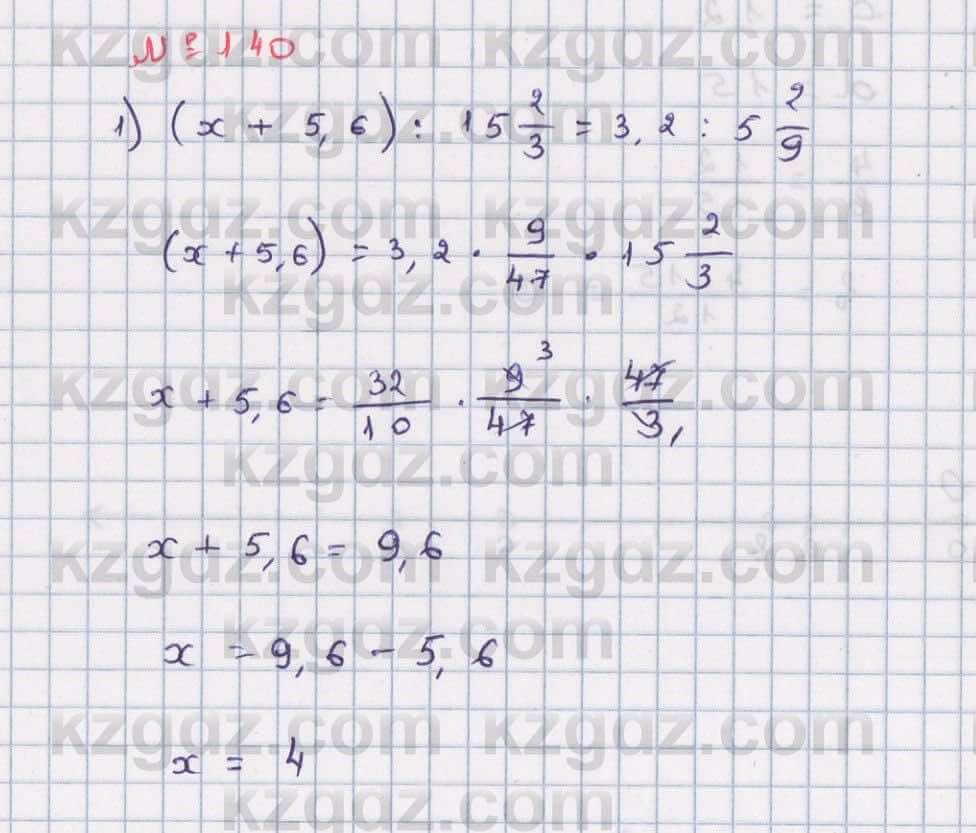 № 140
1) (x + 5,6) : 15 2/3 = 3,2 : 5 2/9
(x + 5,6) = 3,2 · 9/47 · 15 2/3
x + 5,6 = 32/10 · 9 3/47 · 47/3 1
x + 5,6 = 9,6
x = 9,6 - 5,6
x = 4
kzgdz.com kzgdz.com
kzgdz.com
kzgdz.com kzgdz.com
kzgdz.com
kzgdz.com kzgdz.com
kzgdz.com
kzgdz.com kzgdz.com
kzgdz.com
kzgdz.com kzgdz.com
kzgdz.com